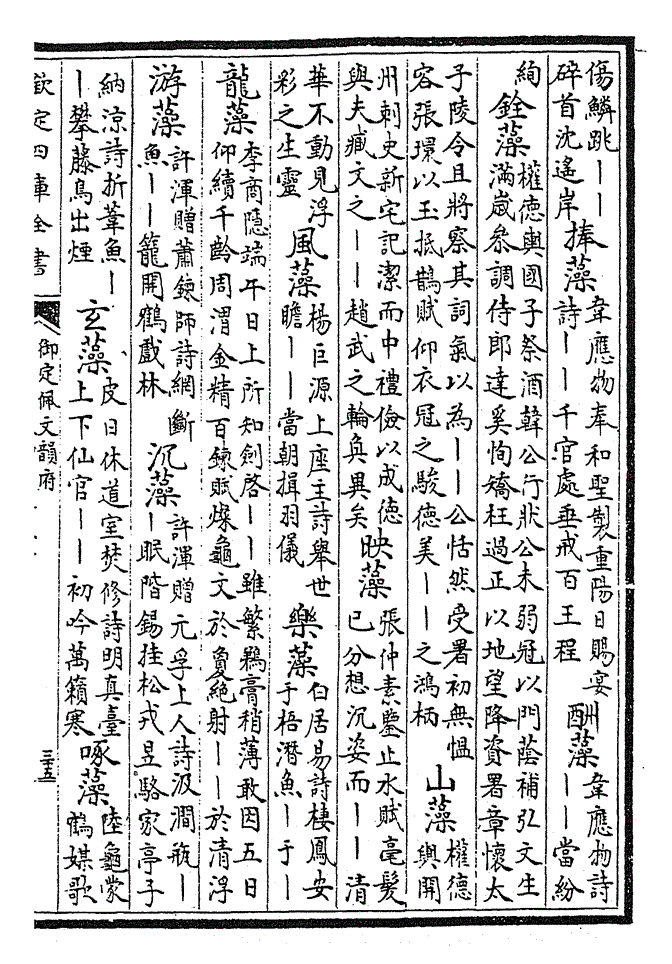 傷鱗跳丨丨
碎首沈遙岸
捧藻
韋應物奉和聖製重陽日賜宴
詩丨丨千官處垂戒百王程
酬藻
韋應物詩
丨丨當紛
絢
銓藻
權德輿國子祭酒韓公行狀公未弱冠以門蔭補弘文生
滿歲叅調侍郎達奚恂矯枉過正以地望降資署章懷太
子陵令且將察其詞氣以為丨丨公恬然受署初無慍
容張環以玉抵鵲賦仰衣冠之駿德美丨丨之鴻柄
山藻
權德
輿開
州刺史新宅記潔而中禮儉以成德
與夫臧文之丨丨趙武之輪奐異矣
映藻
張仲素鑒止水賦毫髮
已分想沉姿而丨丨清
華不動見浮
彩之生靈
風藻
楊巨源上座主詩舉世
瞻丨丨當朝揖羽儀
樂藻
白居易詩棲鳳安
于梧潛魚丨于丨
龍藻
李商隱端午日上所知劍啓丨丨雖繁鵜膏稍薄敢因五日
仰續千齡周渭金精百鍊賦燦龜文於夐絕射丨丨於清浮
游藻
許渾贈蕭鍊師詩網斷
魚丨丨籠開鶴戲林
沉藻
許渾贈元孚上人詩汲澗瓶丨
丨眠階錫挂松戎昱駱家亭子
納涼詩折葦魚丨
丨攀藤鳥出煙
玄藻
皮日休道室焚修詩明真臺
上下仙官丨丨初吟萬籟寒
啄藻
陸龜蒙
鶴媒歌
欽定四庫全書
御定佩文韻府
三十五